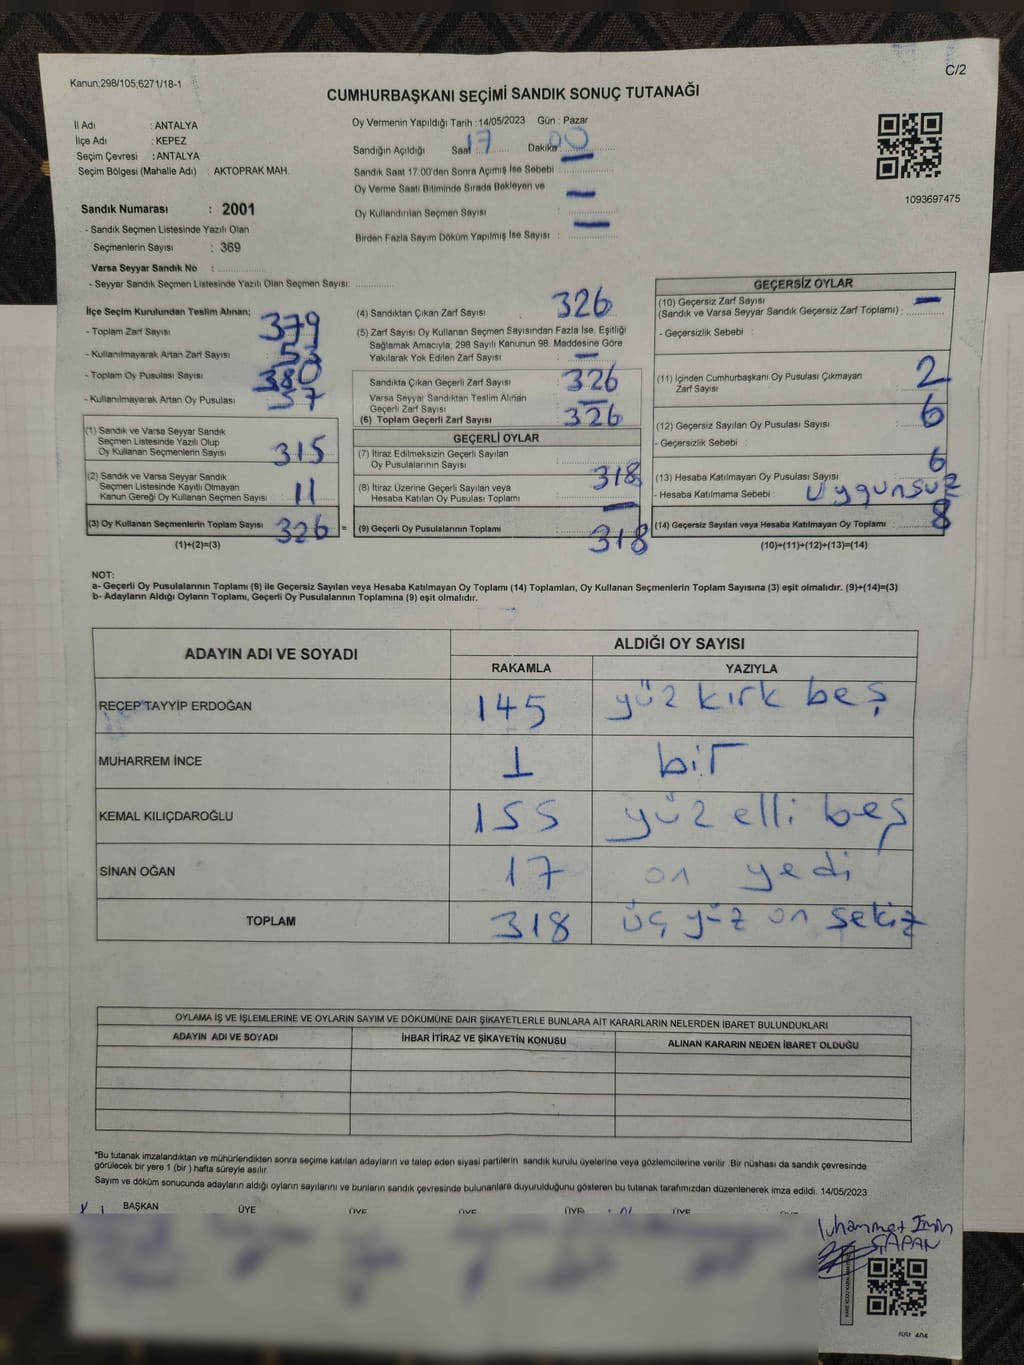 Kanun;298/105;6271/18-1
C/2
CUMHURBAŞKANI SEÇİMİ SANDIK SONUÇ TUTANAĞI
İl Adı : ANTALYA
İlçe Adı : KEPEZ
Seçim Çevresi : ANTALYA
Seçim Bölgesi (Mahalle Adı) : AKTOPRAK MAH.
Sandık Numarası : 2001
- Sandık Seçmen Listesinde Yazılı Olan
Seçmenlerin Sayısı : 369
Varsa Seyyar Sandık No :
- Seyyar Sandık Seçmen Listesinde Yazılı Olan Seçmen Sayısı:
Oy Vermenin Yapıldığı Tarih :14/05/2023 Gün : Pazar
Sandığın Açıldığı Saat : 17 Dakika : 00
Sandık Saat 17:00'den Sonra Açımış İse Sebebi : —
Oy Verme Saati Bitiminde Sırada Bekleyen ve
Oy Kullandırılan Seçmen Sayısı : —
Birden Fazla Sayım Döküm Yapılmış İse Sayısı : —
1093697475
İlçe Seçim Kurulundan Teslim Alınan;
- Toplam Zarf Sayısı : 379
- Kullanılmayarak Artan Zarf Sayısı : 53
- Toplam Oy Pusulası Sayısı : 380
- Kullanılmayarak Artan Oy Pusulası
(1) Sandık ve Varsa Seyyar Sandık
Seçmen Listesinde Yazılı Olup
Oy Kullanan Seçmenlerin Sayısı : 315
(2) Sandık ve Varsa Seyyar Sandık
Seçmen Listesinde Kayıtlı Olmayan
Kanun Gereği Oy Kullanan Seçmen Sayısı : 11
(3) Oy Kullanan Seçmenlerin Toplam Sayısı : 326 =
(1)+(2)=(3)
(4) Sandıktan Çıkan Zarf Sayısı : 326
(5) Zarf Sayısı Oy Kullanan Seçmen Sayısından Fazla İse, Eşitliği
Sağlamak Amacıyla, 298 Sayılı Kanunun 98. Maddesine Göre
Yakılarak Yok Edilen Zarf Sayısı : —
Sandıkta Çıkan Geçerli Zarf Sayısı : 326
Varsa Seyyar Sandıktan Teslim Alınan
Geçerli Zarf Sayısı : —
(6) Toplam Geçerli Zarf Sayısı : 326
GEÇERLİ OYLAR
(7) İtiraz Edilmeksizin Geçerli Sayılan
Oy Pusulalarının Sayısı : 318
(8) İtiraz Üzerine Geçerli Sayılan veya
Hesaba Katılan Oy Pusulası Toplamı : —
(9) Geçerli Oy Pusulalarının Toplamı : 318
GEÇERSİZ OYLAR
(10) Geçersiz Zarf Sayısı
(Sandık ve Varsa Seyyar Sandık Geçersiz Zarf Toplamı) : —
- Geçersizlik Sebebi :
(11) İçinden Cumhurbaşkanı Oy Pusulası Çıkmayan
Zarf Sayısı : 2
(12) Geçersiz Sayılan Oy Pusulası Sayısı : 6
- Geçersizlik Sebebi :
(13) Hesaba Katılmayan Oy Pusulası Sayısı : 6
- Hesaba Katılmama Sebebi : Uygunsuz
(14) Geçersiz Sayılan veya Hesaba Katılmayan Oy Toplamı : 8
(10)+(11)+(12)+(13)=(14)
NOT:
a- Geçerli Oy Pusulalarının Toplamı (9) ile Geçersiz Sayılan veya Hesaba Katılmayan Oy Toplamı (14) Toplamları, Oy Kullanan Seçmenlerin Toplam Sayısına (3) eşit olmalıdır. (9)+(14)=(3)
b- Adayların Aldığı Oyların Toplamı, Geçerli Oy Pusulalarının Toplamına (9) eşit olmalıdır.
ADAYIN ADI VE SOYADI
ALDIĞI OY SAYISI
RAKAMLA YAZIYLA
RECEP TAYYİP ERDOĞAN 145 yüz kırk beş
MUHARREM İNCE 1 bir
KEMAL KILIÇDAROĞLU 155 yüz elli beş
SİNAN OĞAN 17 on yedi
TOPLAM 318 üç yüz on sekiz
OYLAMA İŞ VE İŞLEMLERİNE VE OYLARIN SAYIM VE DÖKÜMÜNE DAİR ŞİKAYETLERLE BUNLARA AİT KARARLARIN NELERDEN İBARET BULUNDUKLARI
ADAYIN ADI VE SOYADI İHBAR İTİRAZ VE ŞİKAYETİN KONUSU ALINAN KARARIN NEDEN İBARET OLDUĞU
*Bu tutanak imzalandıktan ve mühürlendikten sonra seçime katılan adayların ve talep eden siyasi partilerin sandık kurulu üyelerine veya gözlemcilerine verilir. Bir nüshası da sandık çevresinde
görülecek bir yere 1 (bir) hafta süreyle asılır.
Sayım ve döküm sonucunda adayların aldığı oyların sayılarını ve bunların sandık çevresinde bulunanlara duyurulduğunu gösteren bu tutanak tarafımızdan düzenlenerek imza edildi. 14/05/2023
BAŞKAN ÜYE ÜYE ÜYE ÜYE ÜYE
Muhammet Emin
ÇAPAN